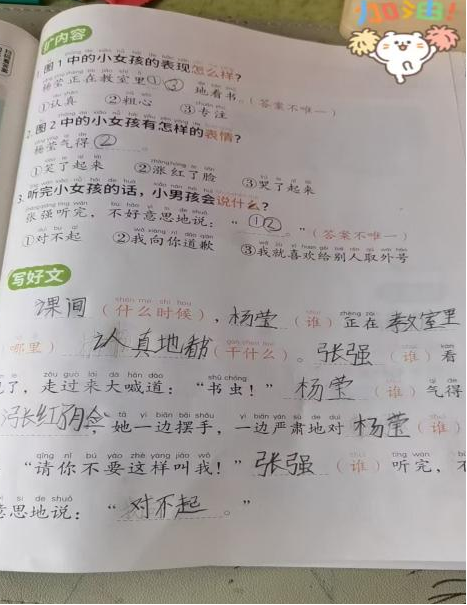 加油!
扩内容
1. 图1中的小女孩的表现怎么样?
杨莹正在教室里①③地看书。(答案不唯一)
①认真 ②粗心 ③专注
2. 图2中的小女孩有怎样的表情?
杨莹气得②。
①笑了起来 ②涨红了脸 ③哭了起来
3. 听完小女孩的话,小男孩会说什么?
张强听完,不好意思地说:“①②。”(答案不唯一)
①对不起 ②我向你道歉 ③我就喜欢给别人取外号
写好文
课间(什么时候),杨莹(谁)正在教室里
哪里)认真地看(干什么)。张强(谁)看
了,走过来大喊道:“书虫!”杨莹(谁)气得
涨红了脸,她一边摆手,一边严肃地对杨莹(谁)
“请你不要这样叫我!”张强(谁)听完,不
意思地说:“对不起。”